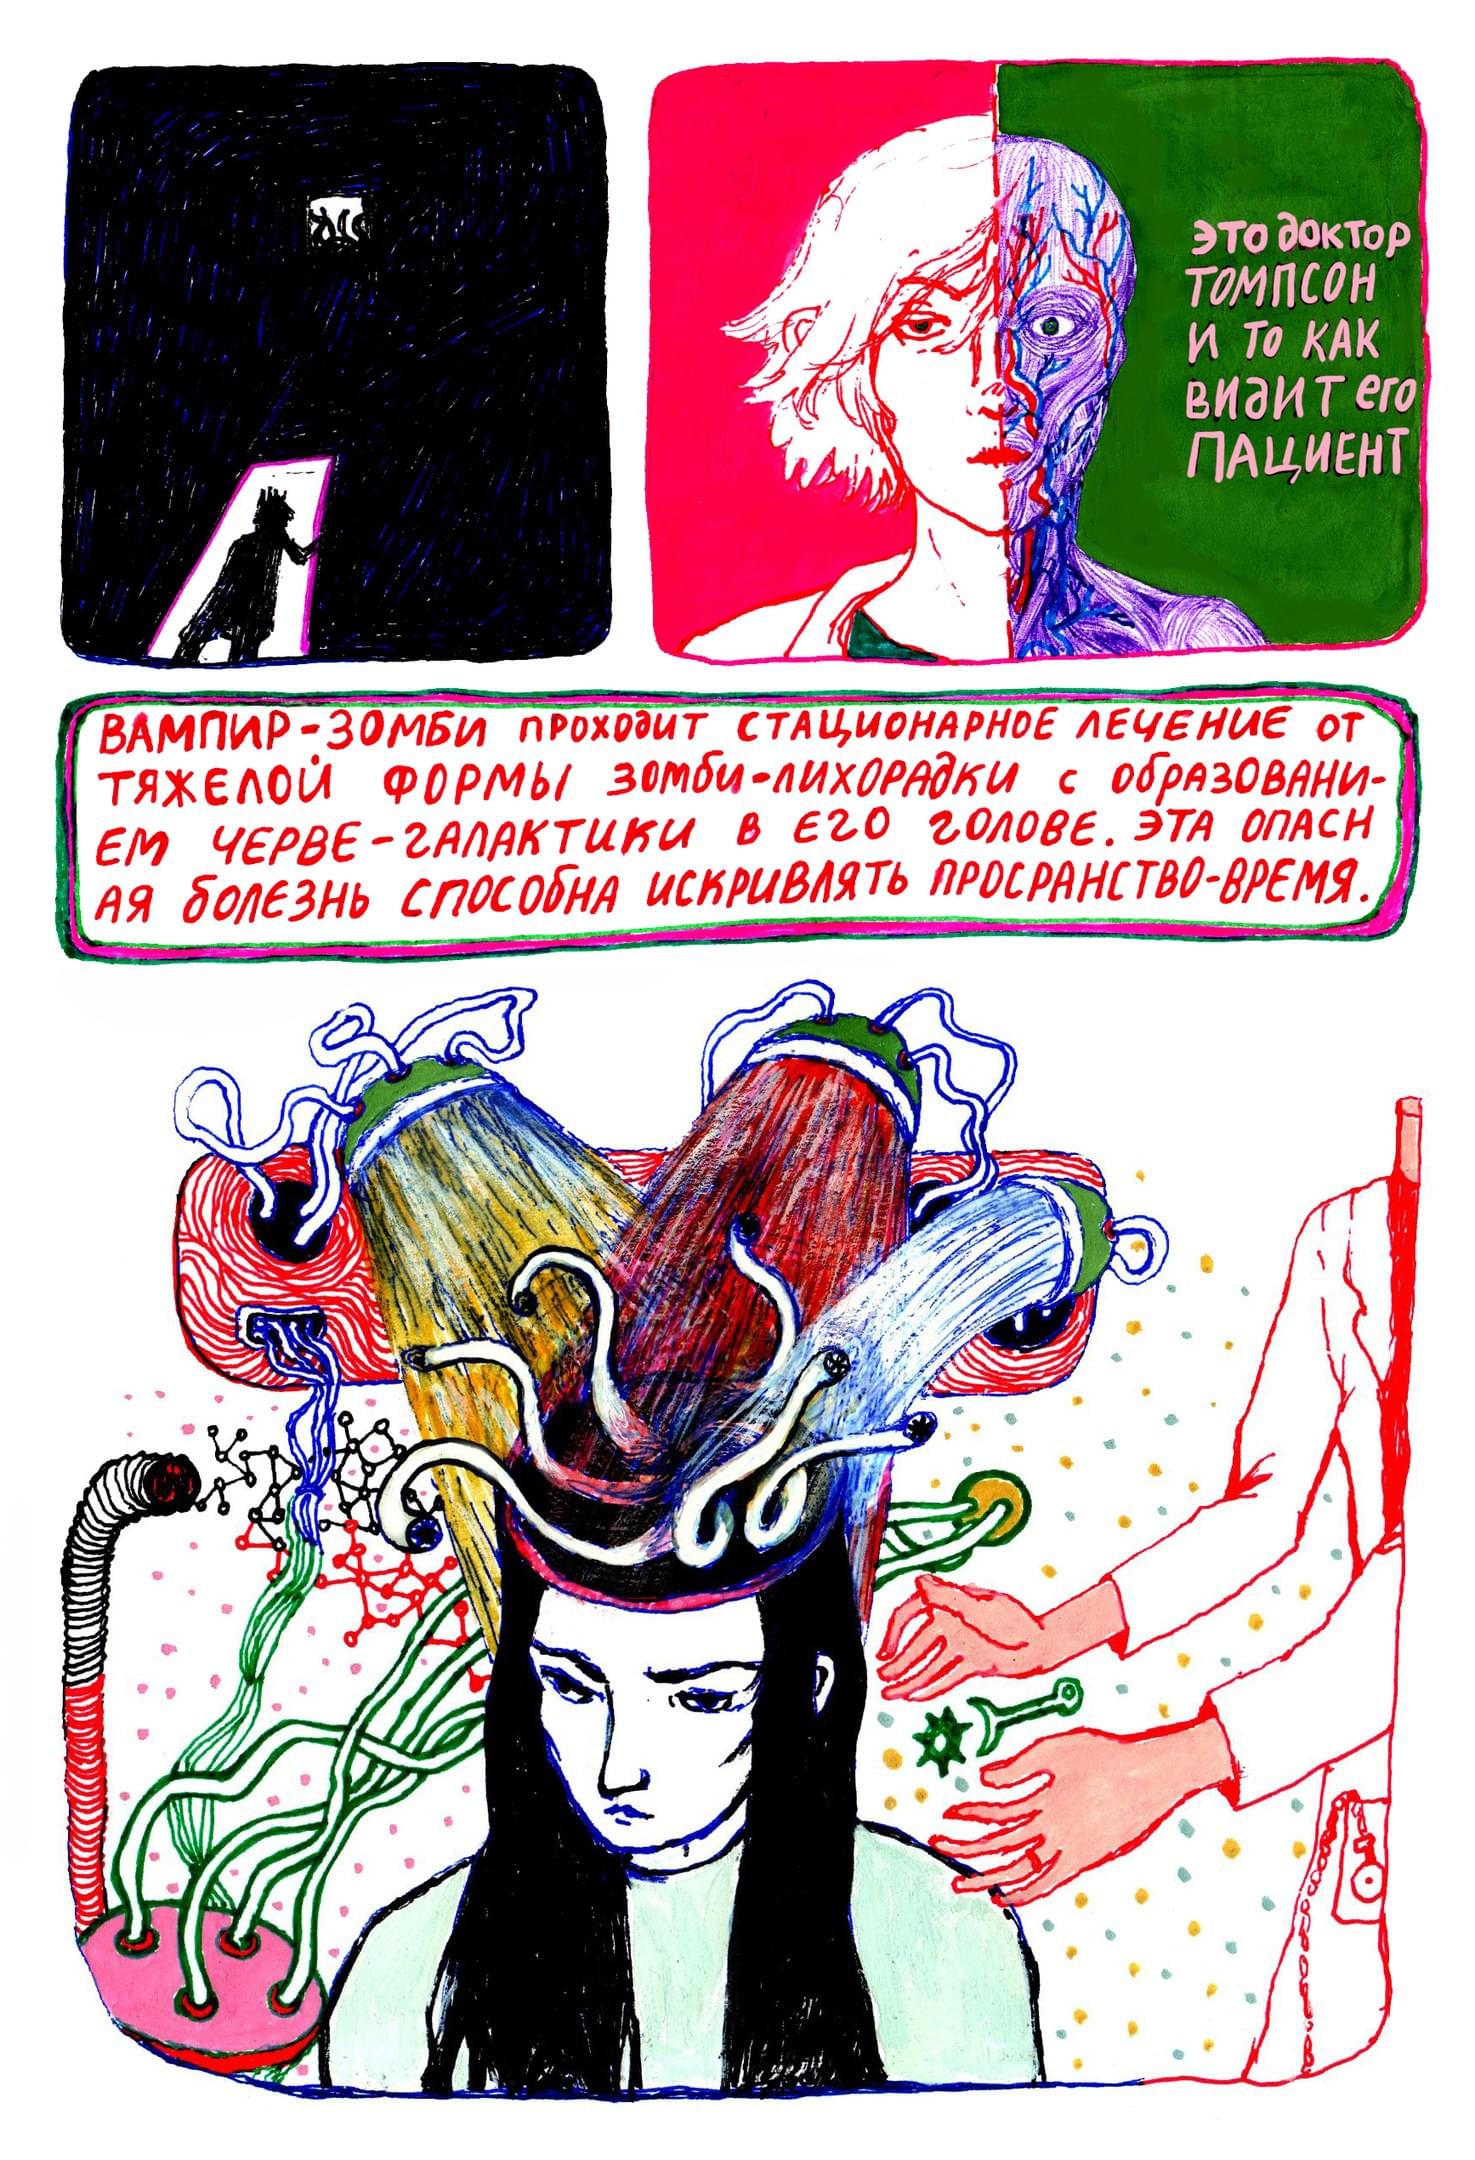 ЭТО ДОКТОР
ТОМПСОН
И ТО КАК
ВИДИТ его
ПАЦИЕНТ
ВАМПИР-ЗОМБИ ПРОХОДИТ СТАЦИОНАРНОЕ ЛЕЧЕНИЕ ОТ
ТЯЖЕЛОЙ ФОРМЫ ЗОМБИ-ЛИХОРАДКИ С ОБРАЗОВАНИ-
ЕМ ЧЕРВЕ-ГАЛАКТИКИ В ЕГО ГОЛОВЕ. ЭТА ОПАСН
АЯ БОЛЕЗНЬ СПОСОБНА ИСКРИВЛЯТЬ ПРОСРАНСТВО-ВРЕМЯ.